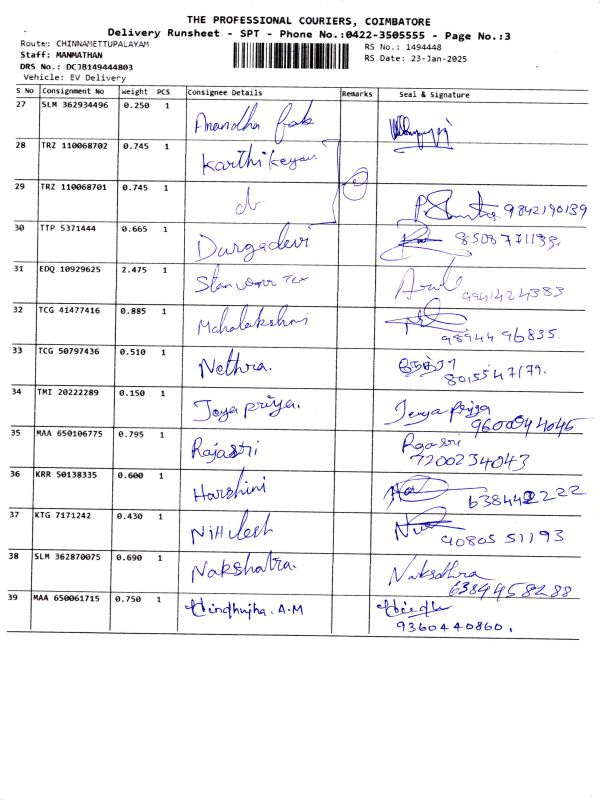 THE PROFESSIONAL COURIERS, COIMBATORE
Delivery Runsheet - SPT - Phone No.:0422-3505555 - Page No.:3
Route: CHINNAMETTUPALAYAM RS No.: 1494448
Staff: MANMATHAN RS Date: 23-Jan-2025
DRS No.: DCJB149444803
Vehicle: EV Delivery
S No Consignment No Weight PCS Consignee Details Remarks Seal & Signature
27 SLM 362934496 0.250 1 Anandha
28 TRZ 110068702 0.745 1 Karthikeyan
29 TRZ 110068701 0.745 1 9842190139
30 TTP 5371444 0.665 1 Durgadevi 8508771139
31 EDQ 10929625 2.475 1 Arul 9941424383
32 TCG 41477416 0.885 1 Mahalakshmi 98944 96835
33 TCG 50797436 0.510 1 Nethra. 8015547179.
34 TMI 20222289 0.150 1 Jeyapriya. Jeyapriya 9600944046
35 MAA 650106775 0.795 1 Rajasri 7200234043
36 KRR 50138335 0.600 1 Harshini 6384422222
37 KTG 7171242 0.430 1 Nihilesh 90805 51193
38 SLM 362870075 0.690 1 Nakshatra. Naksdhra 6384458288
39 MAA 650061715 0.750 1 Hindhujha. A.M 9360440860.